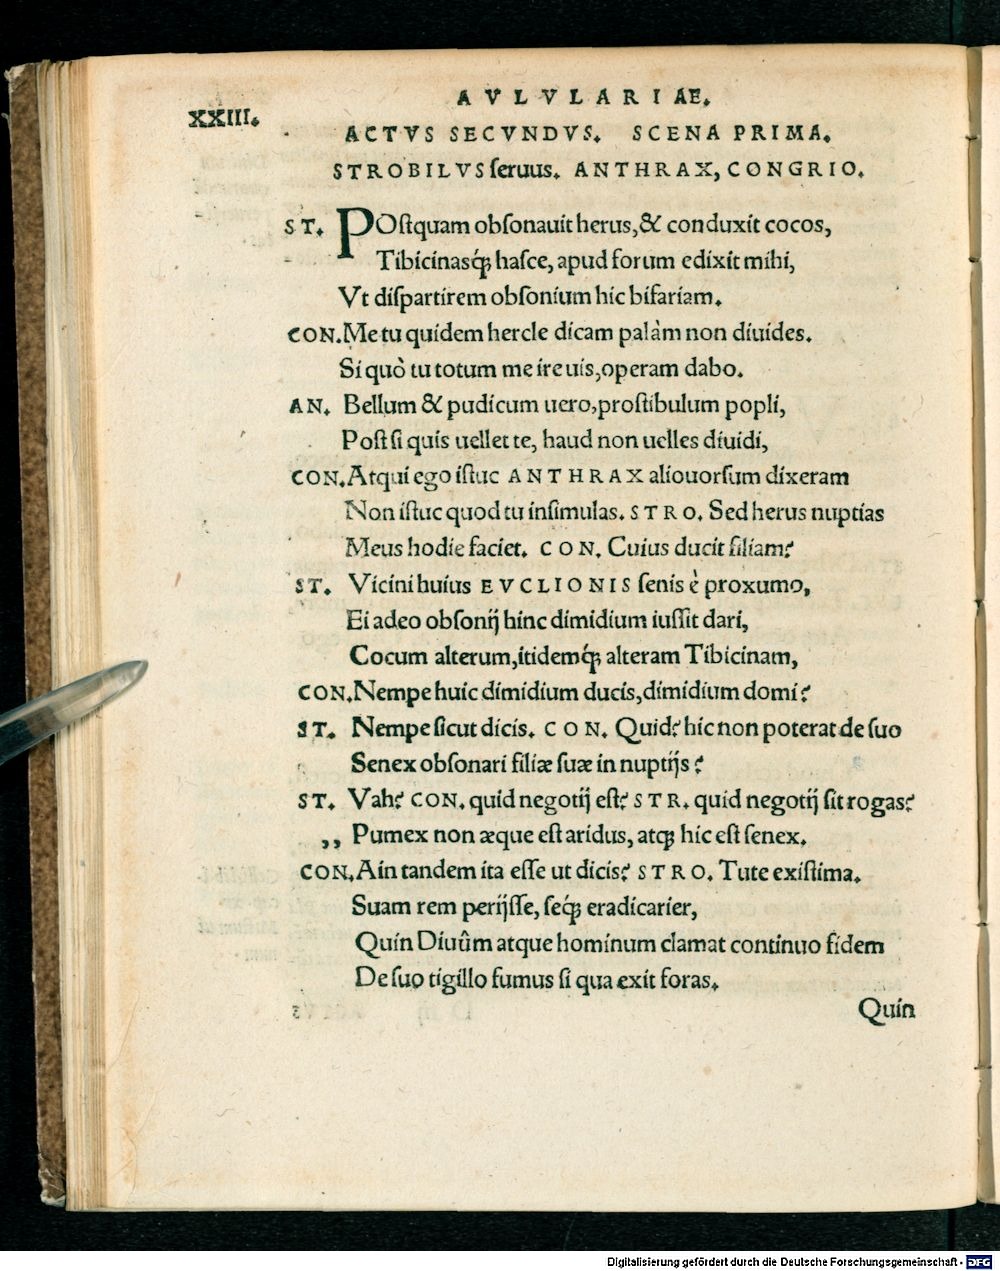 AVLVLARIAE.
XXIII.
ACTVS SECVNDVS. SCENA PRIMA.
STROBILVS ſeruus. ANTHRAX, CONGRIO.
ST. POſtquam obſonauit herus,& conduxit cocos,
Tibicinasq́; haſce, apud forum edixit mihi,
Vt diſpartirem obſonium hic bifariam.
CON. Me tu quidem hercle dicam palàm non diuides.
Si quò tu totum me ire uis,operam dabo.
AN. Bellum & pudicum uero,proſtibulum popli,
Poſt ſi quis uellet te, haud non uelles diuidi,
CON. Atqui ego iſtuc ANTHRAX aliouorſum dixeram
Non iſtuc quod tu inſimulas. STRO. Sed herus nuptias
Meus hodie faciet. CON. Cuius ducit filiam?
ST. Vicini huius EVCLIONIS ſenis è proxumo,
Ei adeo obſonij hinc dimidium iuſſit dari,
Cocum alterum,itidemq́; alteram Tibicinam,
CON. Nempe huic dimidium ducis,dimidium domi?
ST. Nempe ſicut dicis. CON. Quid? hic non poterat de ſuo
Senex obſonari filiæ ſuæ in nuptijs?
ST. Vah? CON. quid negotij eſt? STR. quid negotij ſit rogas?
,, Pumex non æque eſt aridus, atq; hic eſt ſenex.
CON. Ain tandem ita eſſe ut dicis? STRO. Tute exiſtima.
Suam rem perijſſe, ſeq́; eradicarier,
Quin Diuûm atque hominum clamat continuo fidem
De ſuo tigillo fumus ſi qua exit foras.
Quin
Digitalisierung gefördert durch die Deutsche Forschungsgemeinschaft - DFG